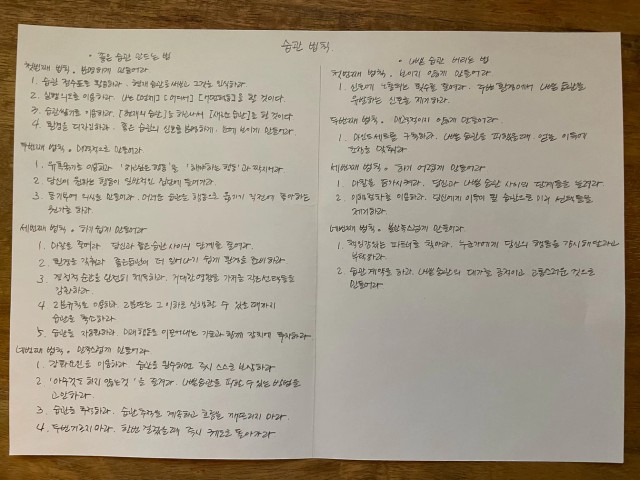 습관 법칙
· 좋은 습관 만드는 법
첫번째 법칙. 분명하게 만들어라
1. 습관 점수표를 활용하라. 현재 습관을 써보고 그것을 인식하라
2. 실행의도를 이용하라. 나는 [언제] [어디서] [어떤행동]을 할 것이다.
3. 습관쌓기를 이용하라. [현재의 습관]을 하고나서 [새로운 습관]을 할 것이다.
4. 환경을 디자인하라. 좋은 습관의 신호를 분명하게, 눈에 보이게 만들어라.
두번째 법칙. 매력적으로 만들어라.
1. 유혹묶기를 이용하라. '하고싶은 행동'을 '해야하는 행동'과 짝지어라
2. 당신이 원하는 행동이 일반적인 집단에 들어가라.
3. 동기부여 의식을 만들어라. 어려운 습관을 행동으로 옮기기 직전에 좋아하는
뭔가를 하라.
세번째 법칙. 하기 쉽게 만들어라
1. 마찰을 줄여라. 당신과 좋은습관 사이의 단계를 줄여라.
2. 환경을 갖춰라. 좋은습관이 더 일어나기 쉽게 환경을 준비하라
3. 결정적 순간을 완전히 체득하라. 거대한 영향을 가져올 작은선택들을
강화하라.
4. 2분규칙을 이용하라. 2분또는 그 이하로 실행할 수 있을 때까지
습관을 축소하라
5. 습관을 자동화하라. 미래행동으로 이끌어내는 기술과 함께 장치에 투자하라
네번째 법칙. 만족스럽게 만들어라
1. 강화요인을 이용하라. 습관을 완수하면 즉시 스스로 보상하라
2. '아무것도 하지 않는것'을 즐겨라. 나쁜습관을 피할 수 있는 방법을
고안하라
3. 습관을 추적하라. 습관추적을 계속하고 흐름을 깨뜨리지 마라.
4. 두번 거르지 마라. 한번 걸렀을때 즉시 궤도로 돌아가라
· 나쁜 습관 버리는 법
첫번째 법칙. 보이지 않게 만들어라
1. 신호에 노출되는 횟수를 줄여라. 주변 환경에서 나쁜 습관을
유발하는 신호를 제거하라.
두번째 법칙. 매력적이지 않게 만들어라
1. 마인드세트를 구축하라. 나쁜 습관을 피했을때 얻을 이득에
관심을 맞춰라
세번째 법칙. 하기 어렵게 만들어라
1. 마찰을 증가시켜라. 당신과 나쁜 습관 사이의 단계들을 늘려라
2. 이행장치를 이용하라. 당신에게 이득이 될 습관으로 미래 선택들을
제거하라.
네번째 법칙. 불만족스럽게 만들어라
1. 책임감있는 파트너를 찾아라. 누군가에게 당신의 행동을 감시해달라고
부탁하라
2. 습관 계약을 하라. 나쁜 습관의 대가를 공적이고 고통스러운 것으로
만들어라